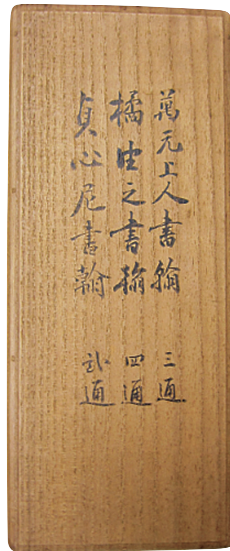 萬元上人書翰 三通
橘由之書翰 四通
貞心尼書翰 弐通